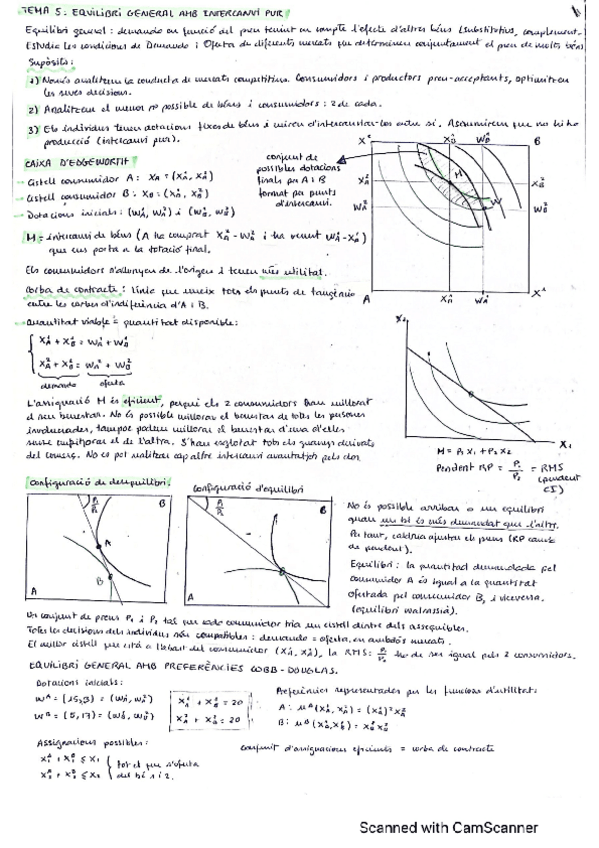 TEMA 5: EQUILIBRI GENERAL AMB INTERCANVI PUR
Equilibri general: demanda en funció del preu tenint en compte l'efecte d'altres béns (substitutius, complement.
Estudia les condicions de Demanda i Oferta de diferents mercats que determinen conjuntament el preu de molts béns
Supòsits:
1) Només analitzem la conducta de mercats competitius. Consumidors i productors preu-acceptants, optimitzen
les seves decisions.
2) Analitzem el menor nº possible de béns i consumidors: 2 de cada.
3) Els individus tenen dotacions fixes de béns i miren d'intercanviar-los entre si. Assumirem que no hi ha
producció (intercanvi pur).
CAIXA D'EDGEWORTH
conjunt de
possibles dotacions
finals per A i B
format per punts
d'intercanvi.
- Cistell consumidor A: XA = (X¹A, X²A)
- Cistell consumidor B: XB = (X¹B, X²B)
- Dotacions inicials: (W¹A, W²A) i (W¹B, W²B)
M = intercanvi de béns (A ha comprat X²A - W²A i ha venut W¹A - X¹A)
que ens porta a la dotació final.
Els consumidors s'allunyen de l'origen i tenen més utilitat.
Corba de contracte: línia que uneix tots els punts de tangència
entre les corbes d'indiferència d'A i B.
- Quantitat viable = quantitat disponible:
X¹A + X¹B = W¹A + W¹B
X²A + X²B = W²A + W²B
demanda oferta
L'assignació M és eficient, perquè els 2 consumidors han millorat
el seu benestar. No és possible millorar el benestar de totes les persones
involucrades, tampoc podem millorar el benestar d'una d'elles
sense empitjorar el de l'altra. S'han explotat tots els guanys derivats
del comerç. No es pot realitzar cap altre intercanvi avantatjós pels dos
X2
X1
M = P1 X1 + P2 X2
Pendent RP = P1/P2 = RMS
(pendent
CI)
Configuració de desequilibri.
Configuració d'equilibri
P1/P2
B
A
A
B
P1/P2
B
E
A
No és possible arribar a un equilibri
quan un bé és més demandat que l'altre.
Per tant, caldria ajustar els preus (RP canvia
de pendent).
Equilibri: la quantitat demandada pel
consumidor A és igual a la quantitat
ofertada pel consumidor B, i viceversa.
(equilibri walrassià).
Un conjunt de preus P1 i P2 tal que cada consumidor tria un cistell dintre dels assequibles.
Totes les decisions dels individus són compatibles: demanda = oferta, en ambdós mercats.
El millor cistell per està a l'abast del consumidor (X¹A, X²A), la RMS: P1/P2 ha de ser igual pels 2 consumidors.
EQUILIBRI GENERAL AMB PREFERÈNCIES COBB-DOUGLAS.
Dotacions inicials:
WA = (15,3) = (W¹A, W²A)
WB = (5,17) = (W¹B, W²B)
X¹A + X¹B = 20
X²A + X²B = 20
Preferències representades per les funcions d'utilitat:
A: uA (X¹A, X²A) = (X¹A)² X²A
B: uB (X¹B, X²B) = X¹B X²B
Assignacions possibles:
tot el que s'oferta
del bé 1 i 2.
conjunt d'assignacions eficients = corba de contracte
Scanned with CamScanner